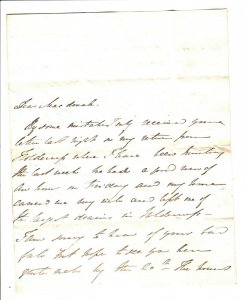 Dear Macdonald.
By some mistake I only received your
letter last night on my return from
Holderness where I have been hunting
the last week he had a good run of
one hour on Friday and my horse
carried me very well and kept me of
the largest drains in Holderness.
I am sorry to hear of your bad
fall but hope to see you here
quite well by the 20th. The hounds